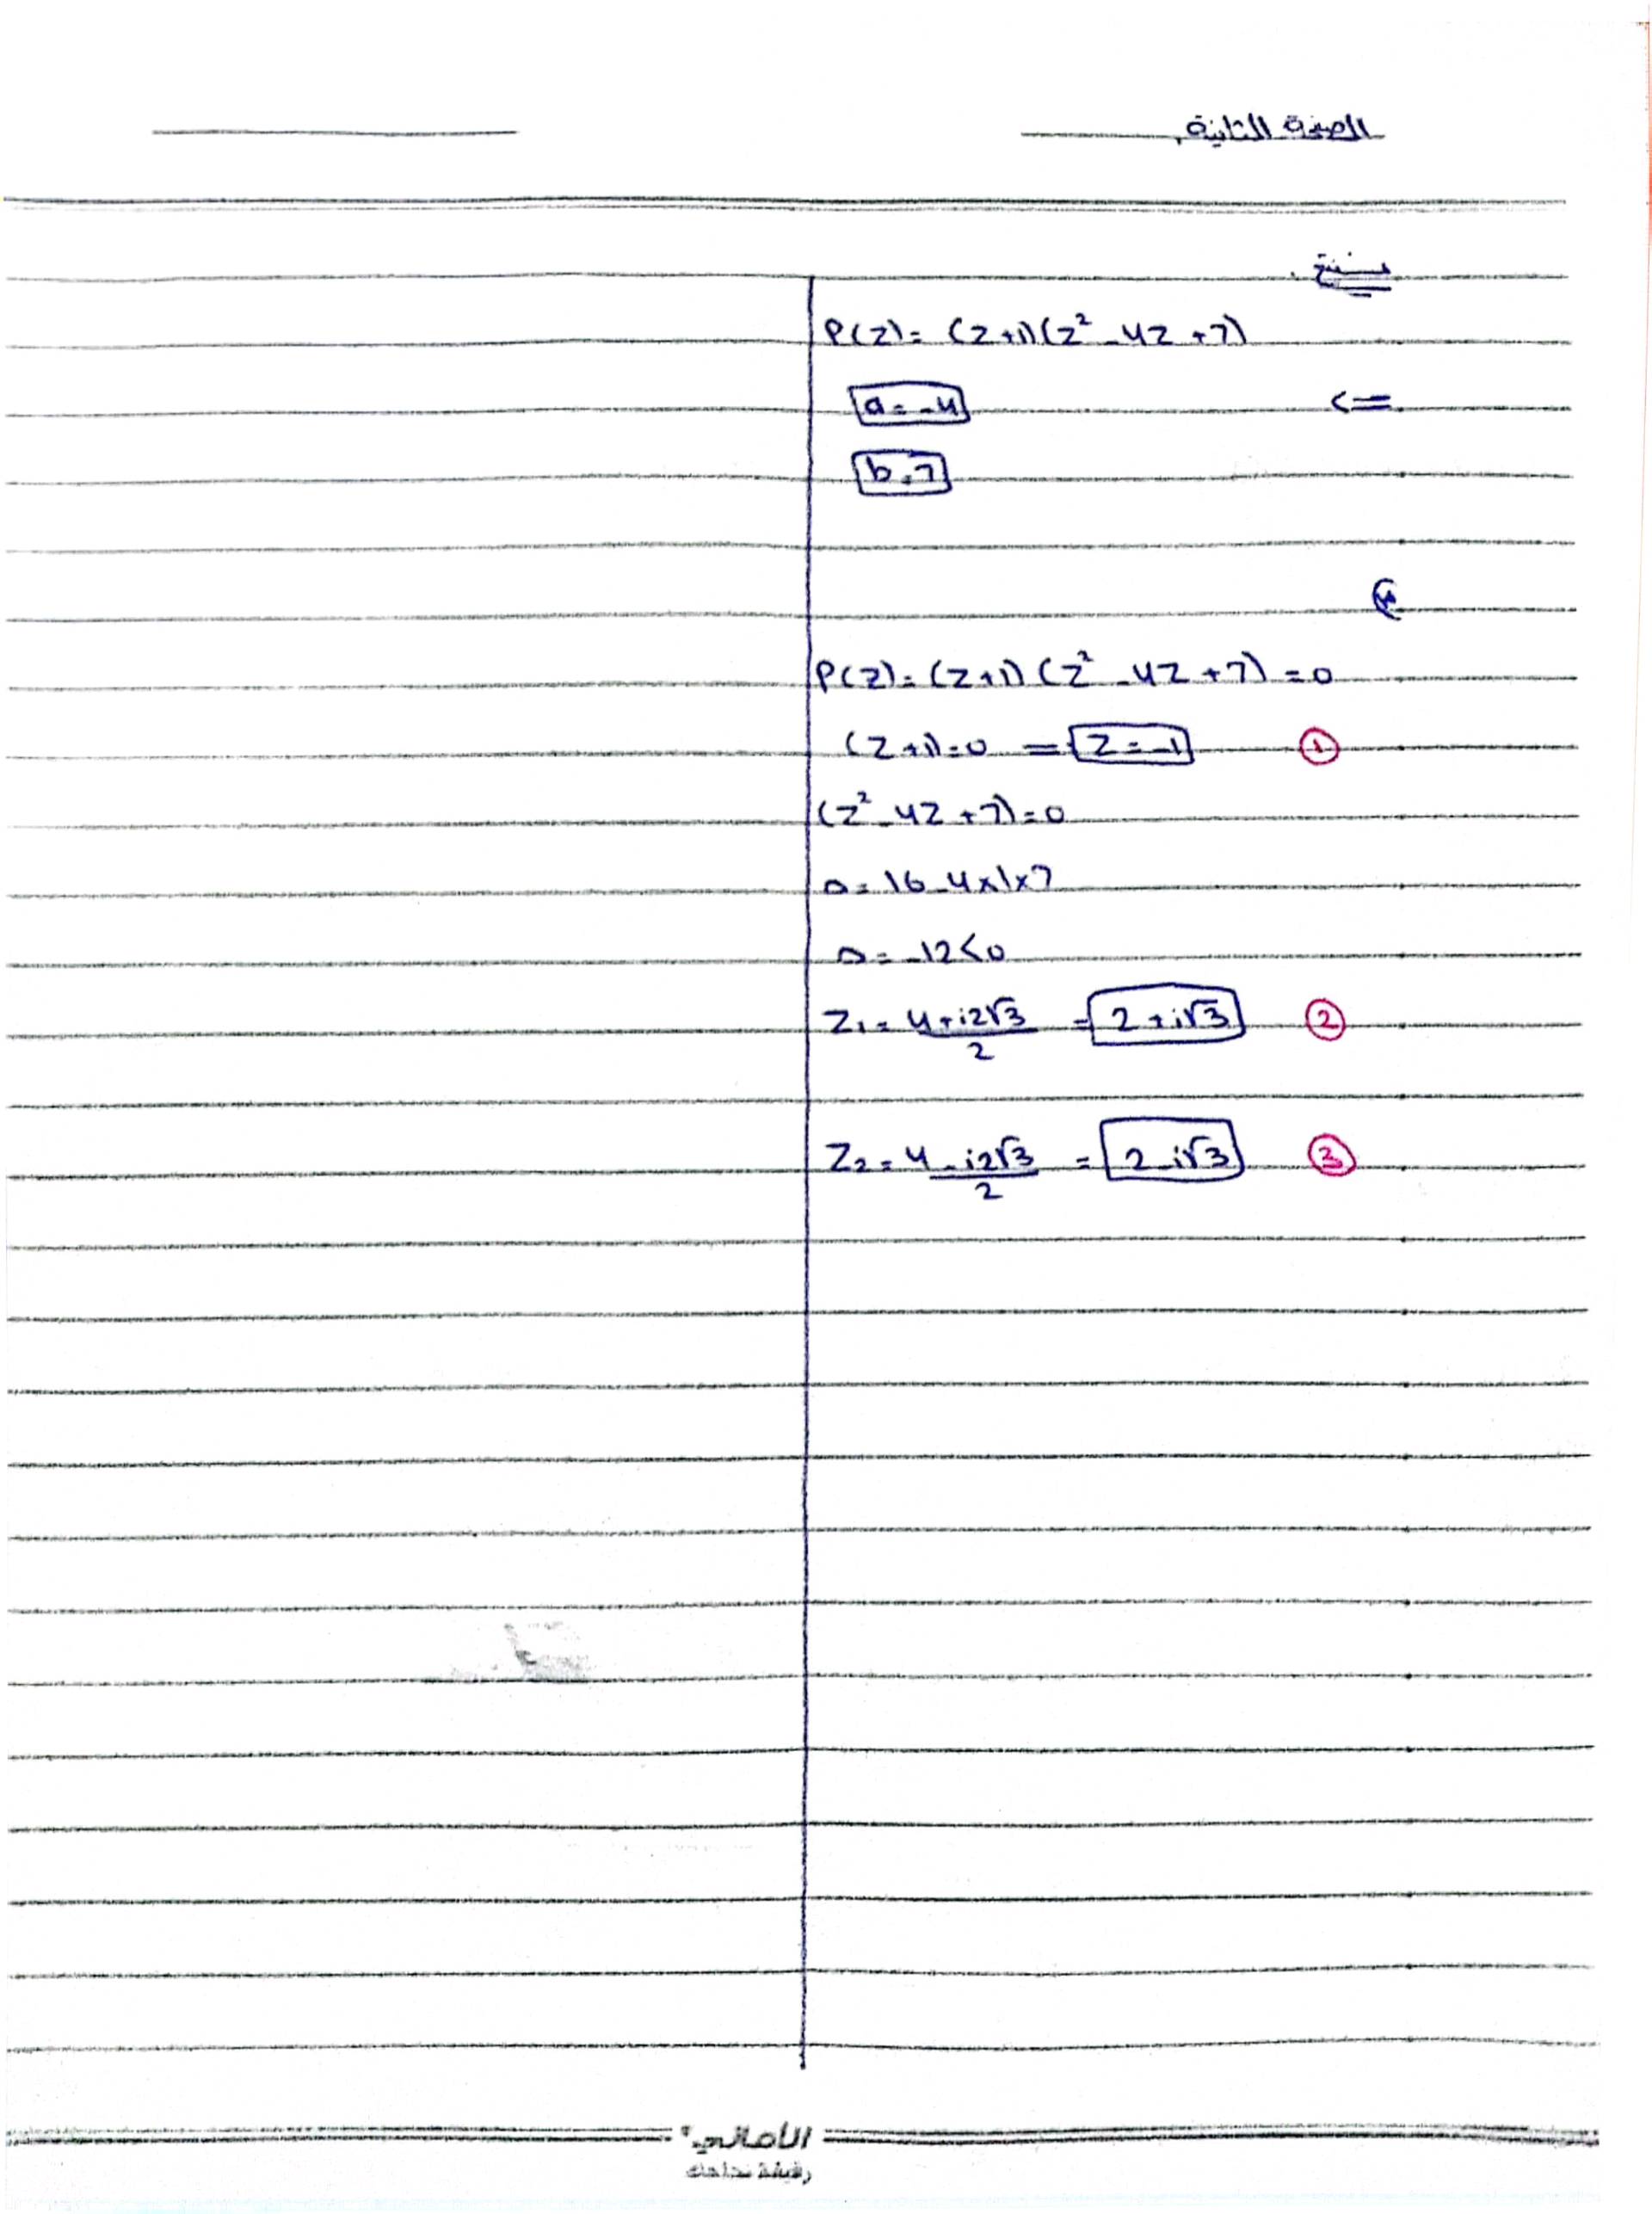 الصفحة الثانية
ينتج
P(Z) = (Z+1)(Z² - 4Z + 7)
a = -4 <=
b = 7
P(Z) = (Z+1)(Z² - 4Z + 7) = 0
(Z+1) = 0 = Z = -1 ①
(Z² - 4Z + 7) = 0
Δ = 16 - 4×1×7
Δ = -12 < 0
Z₁ = (4 + i2√3)/2 = 2 + i√3 ②
Z₂ = (4 - i2√3)/2 = 2 - i√3 ③
الأماني
رفيقة نجاحك